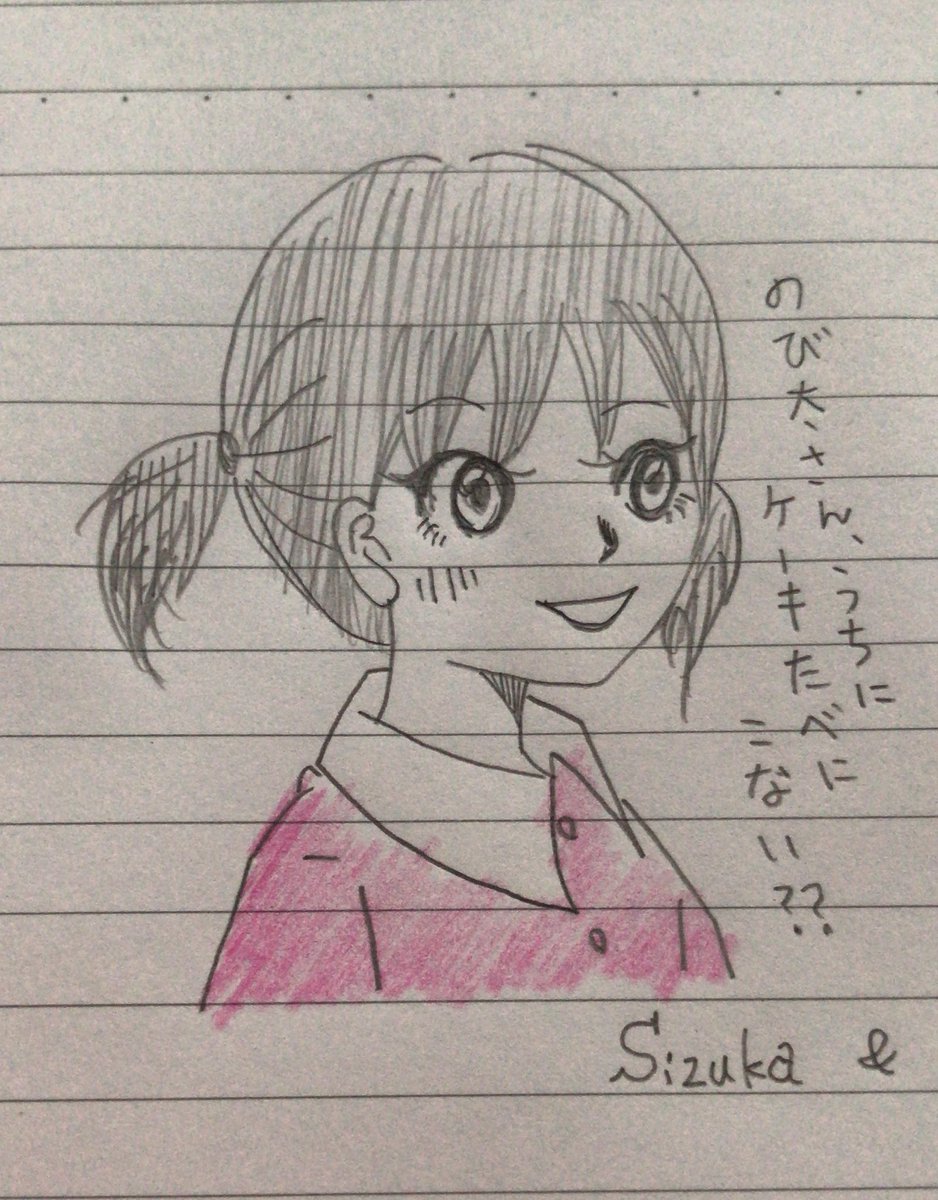 のび太さん、うちに
ケーキたべに
こない??
Sizuka &